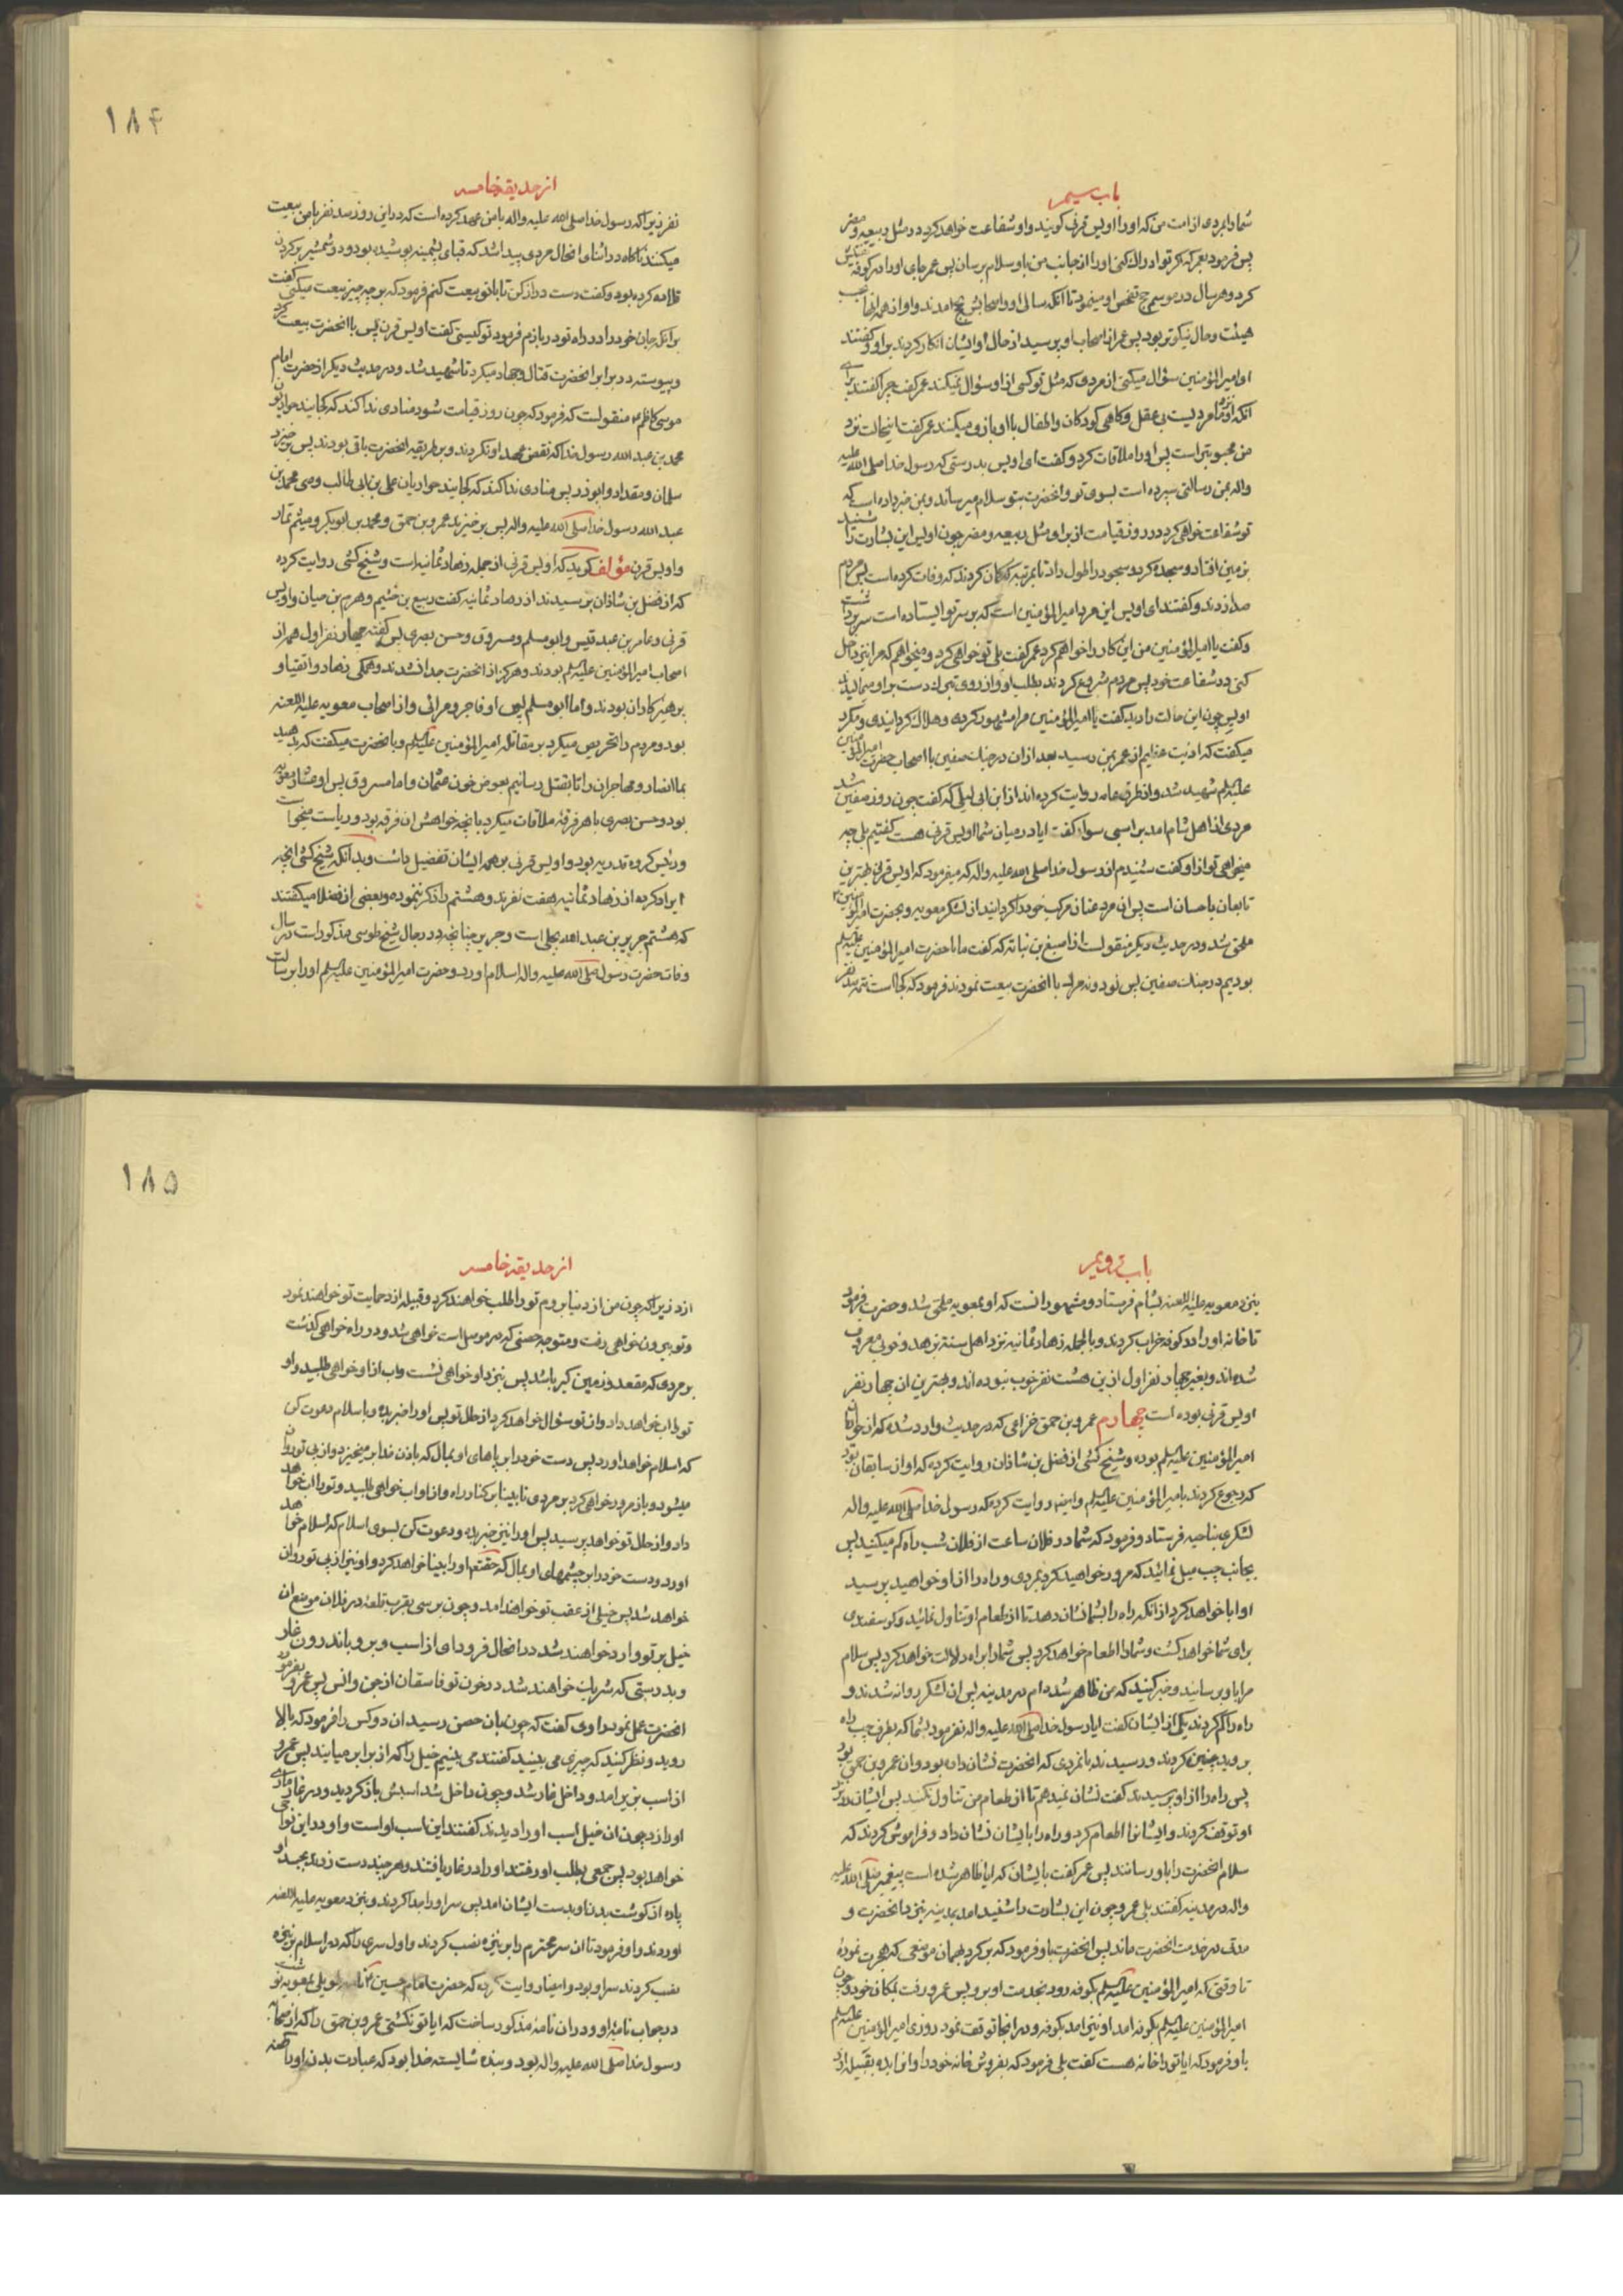 باب سیم
شما را بمردی از امت من که او را اویس قرنی کویند و او شفاعت خواهد کرد در مثل ربیعه و مضر
پس فرمود بعمر که اکر تو ادراک کنی او را از جانب من باو سلام برسان پس عمر جای او را در کوفه
کرد و هر سال در موسم حج تفحص او مینمود تا انکه سالی او و اصحابش بحج امدند و او از همه انها
هیئت و حال نیکوتر بود پس عمر از اصحاب او پرسید از حال او ایشان انکار کردند بر او و کفتند
او امیرالمؤمنین سؤال میکنی از مردی که مثل تو کسی از او سؤال نمیکند عمر کفت چرا کفتند برای
انکه او نزد ما مردیست بی عقل و کاهی کودکان و اطفال با او بازی میکنند عمر کفت اینحالت نزد
من محبوبتر است پس او را ملاقات کرد و کفت ای اویس بدرستی که رسول خدا صلی الله علیه
واله بمن رسالتی سپرده است بسوی تو و انحضرت بتو سلام میرساند و بمن خبر داده است که
تو شفاعت خواهی کرد در روز قیامت از برای مثل ربیعه و مضر چون اویس این بشارت را شنید
بزمین افتاد و سجده کرد و سجود را طول داد تا بمرتبه که کمان کردند که وفات کرده است پس مردم
صدا زدند و کفتند ای اویس این مرد امیرالمؤمنین است که بر سر تو ایستاده است سر برداشت
و کفت یا امیرالمؤمنین من این کار را خواهم کرد عمر کفت بلی تو خواهی کرد و میخواهم که مرا نیز داخل
کنی در شفاعت خود پس مردم شروع کردند بطلب او و از روی تبرک دست بر او میمالیدند
اویس چون این حالت را دید کفت یا امیرالمؤمنین مرا مشهور کردی و هلاک کردانیدی و مکرر
میکفت که اذیت عظیم از عمر بمن رسید بعد از ان در جنک صفین با اصحاب حضرت امیرالمؤمنین
علیه السلم شهید شد و از طرق عامه روایت کرده اند از ابن ابی لیلی که کفت چون روز صفین شد
مردی از اهل شام امد بر اسبی سوار کفت ایا در میان شما اویس قرنی هست کفتیم بلی چه
میخواهی تو از او کفت شنیدم از رسول خدا صلی الله علیه واله که میفرمود که اویس قرنی بهترین
تابعان باحسان است پس ان مرد عنان مرکب خود را کردانید از لشکر معویه و بحضرت امیرالمؤمنین
ملحق شد و در حدیث دیکر منقولست از اصبغ بن نباته که کفت ما با حضرت امیرالمؤمنین علیه السلم
بودیم در جنک صفین پس نود و نه مرد با انحضرت بیعت نمودند فرمود که کجا است تتمه صد نفر
۱۸۴
از حدیقه خامسه
نفر زیرا که رسول خدا صلی الله علیه واله با من عهد کرده است که در این روز صد نفر با من بیعت
میکنند ناکاه در اثنای انحال مردی پیدا شد که قبای پشمینه پوشیده بود و دو شمشیر بر کردن
قلاده کرده بود و کفت دست دراز کن تا با تو بیعت کنم فرمود که بر چه چیز بیعت میکنی کفت
بر انکه جان خود را در راه تو در بازم فرمود تو کیستی کفت اویس قرن پس با انحضرت بیعت کرد
و پیوسته در برابر انحضرت قتال و جهاد میکرد تا شهید شد و در حدیث دیکر از حضرت امام
موسی کاظم ع منقولست که فرمود که چون روز قیامت شود منادی ندا کند که کجایند حواریون
محمد بن عبد الله رسول خدا که نقض عهد او نکردند و بر طریقه انحضرت باقی بودند پس برخیزد
سلمان و مقداد و ابوذر پس منادی ندا کند که کجایند حواریان علی بن ابی طالب وصی محمد بن
عبد الله رسول خدا صلی الله علیه واله پس برخیزند عمرو بن حمق و محمد بن ابوبکر و میثم تمار
و اویس قرن مؤلف کوید که اویس قرنی از جمله زهاد ثمانیه است و شیخ کشی روایت کرده
که از فضل بن شاذان پرسیدند از زهاد ثمانیه کفت ربیع بن خثیم و هرم بن حیان و اویس
قرنی و عامر بن عبد قیس و ابو مسلم و مسروق و حسن بصری پس کفته چهار نفر اول همه از
اصحاب امیرالمؤمنین علیه السلم بودند و هرکز از انحضرت جدا نشدند و همکی زهاد و اتقیا و
پرهیزکاران بودند و اما ابو مسلم پس او فاجر و مرائی و از اصحاب معویه علیه اللعنه
بود و مردم را تحریص میکرد بر مقاتله امیرالمؤمنین علیه السلم و با نحضرت میکفت که بدهید
بما انصار و مهاجران را تا بقتل رسانیم بعوض خون عثمان و اما مسروق پس او عشار معویه
بود و حسن بصری با هر فرقه ملاقات میکرد بانچه خواهش ان فرقه بود و ریاست میخواست
و رئیس کروه قدریه بود و اویس قرنی بر همه ایشان تفضیل داشت و بدانکه شیخ کشی انچه
ایراد کرده از زهاد ثمانیه هفت نفرند و هشتم را ذکر ننموده و بعضی از فضلا میکفتند
که هشتم جریر بن عبد الله بجلی است و جریر چنانچه در رجال شیخ طوسی مذکور است در سال
وفات حضرت رسول صلی الله علیه واله اسلام اورد و حضرت امیرالمؤمنین علیه السلم او را برسالت
باب
بنزد معویه علیه اللعنه بشام فرستاد و مشهور انست که او بمعویه ملحق شد و حضرت فرمود
تا خانه او را در کوفه خراب کردند و بالجمله زهاد ثمانیه نزد اهل سنة بزهد و خوبی معروف
شده اند و بغیر چهار نفر اول ازین هشت نفر خوب نبوده اند و بهترین ان چهار نفر
اویس قرنی بوده است چهارم عمرو بن حمق خزاعی که در حدیث وارد شده که از حواریان
امیرالمؤمنین علیه السلم بوده و شیخ کشی از فضل بن شاذان روایت کرده که او از سابقان بود
که رجوع کردند بامیرالمؤمنین علیه السلم و ایضا روایت کرده که رسول خدا صلی الله علیه واله
لشکری بناحیه فرستاد و فرمود که شما در فلان ساعت از فلان شب راه کم میکنید پس
بجانب چپ میل نمائید که مرور خواهید کرد بمردی و راه را از او خواهید پرسید
او ابا خواهد کرد از انکه راه را بشما نشان دهد تا از طعام او تناول نمائید و کوسفندی
برای شما خواهد کشت و شما را اطعام خواهد کرد پس شما را براه دلالت خواهد کرد پس سلام
مرا باو برسانید و خبر کنید که من ظاهر شده ام در مدینه پس ان لشکر روانه شدند و
راه را کم کردند یکی از ایشان کفت ایا رسول خدا صلی الله علیه واله نفرمود بشما که بطرف چپ راه
بروید چنین کردند و رسیدند بانمردی که انحضرت نشان داده بود و ان عمرو بن حمق بود
پس راه را از او پرسیدند کفت نشان نمیدهم تا از طعام من تناول نکنید پس ایشان در نزد
او توقف کردند و ایشانرا اطعام کرد و راه را بایشان نشان داد و فراموش کردند که
سلام انحضرت را باو رسانند پس عمر کفت بایشان که ایا ظاهر شده است پیغمبر صلی الله علیه
واله در مدینه کفتند بلی عمرو چون این بشارت را شنید امد بمدینه بنزد انحضرت و
مدتی در خدمت انحضرت ماند پس انحضرت باو فرمود که برکرد بهمان موضعی که هجرت نمودهٔ
تا وقتی که امیرالمؤمنین علیه السلم بکوفه رود بخدمت او برو پس عمرو رفت بمکان خود و چون
امیرالمؤمنین علیه السلم بکوفه امد او نیز امد بکوفه و در انجا توقف نمود روزی امیرالمؤمنین علیه السلم
باو فرمود که ایا تو را خانه هست کفت بلی فرمود که بفروش خانه خود را و انرا بده بقبیله ازد
۱۸۵
از حدیقه خامسه
ازد زیرا که چون من از دنیا بروم تو را طلب خواهند کرد و قبیله ازد حمایت تو خواهند نمود
و تو بیرون خواهی رفت و متوجه حصنی که در موصل است خواهی شد و در راه خواهی کذشت
بر مردی که مقعد و زمین کیر باشد پس بنزد او خواهی نشست و اب از او خواهی طلبید و او
تو را اب خواهد داد و از تو سؤال خواهد کرد از حال تو پس او را خبر بده و باسلام دعوت کن
که اسلام خواهد اورد پس دست خود را بر پاهای او بمال که باذن خدا بر میخیزد و از پی تو روان
میشود و باز مرور خواهی کرد بر مردی نابینا بر کنار راه و از او اب خواهی طلبید و تو را اب خواهد
داد و از حال تو خواهد پرسید پس او را نیز خبر بده و دعوت کن بسوی اسلام که اسلام خواهد
اورد و دست خود را بر چشمهای او بمال که حقتعالی او را بینا خواهد کرد و او نیز از پی تو روان
خواهد شد پس خیلی از عقب تو خواهند امد و چون برسی بقرب قلعه در فلان موضع ان
خیل بر تو وارد خواهند شد در انحال فرود ای از اسب و برو باندرون غار
و بدرستی که شریک خواهند شد در خون تو فاسقان از جن و انس پس عمرو بفرموده
انحضرت عمل نمود راوی کفت که چون بان حصن رسید ان دو کس را فرمود که بالا
روید و نظر کنید که چیزی می بینید کفتند می بینیم خیل را که از برابر میایند پس عمرو
از اسب بزیر امد و داخل غار شد و چون داخل شد اسبش باز کردید و در غار ماری
او را زد چون ان خیل اسب او را دیدند کفتند این اسب اوست و او در این نواحی
خواهد بود پس جمعی بطلب او رفتند او را در غار یافتند و هر چند دست زدند بجسد او
پاره از کوشت بدن او بدست ایشان امد پس سر او را جدا کردند و بنزد معویه علیه اللعنه
اوردند و او فرمود تا ان سر محترم را بر نیزه نصب کردند و اول سری را که در اسلام بر نیزه
نصب کردند سر او بود و ایضا روایت کرده که حضرت امام حسین ع نامه طویلی بمعویه نوشت
در جواب نامهٔ او و در ان نامهٔ مذکور ساخت که ایا تو نکشتی عمرو بن حمق را که از صحابه
رسول خدا صلی الله علیه واله بود و بنده شایسته خدا بود که عبادت بدن او را کهنه